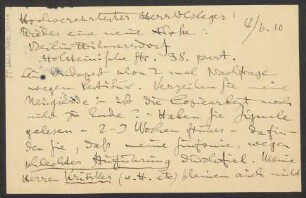 Hochverehrtester Herr Kollege!
12/6. 10
Wieder eine neue Bitte:
Berlin Wilmersdorf
Holsteinische Str. 38. part.
2 mal Nachfrage
wegen Verzeihen Sie meine
Neugierde - ist die Copiearbeit noch
nicht zu Ende? Haben Sie Signale
gelesen - 2-3 Wochen
Sie, daß meine Sinfonie, wegen
schlechter Aufführung durchfiel. Meine
Herren Kritiker (v. H. etc) scheinen auch nicht